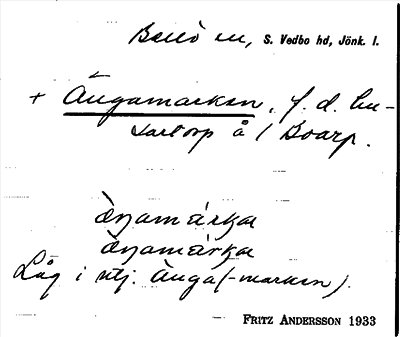 Bellö sn, S. Vedbo hd, Jönk. l.
+ Ängamarken, f. d. lu-
dartorp å / Boarp.
ängamárka
ängamárka
Låg i utj. Änga (-marken).
FRITZ ANDERSSON 1933